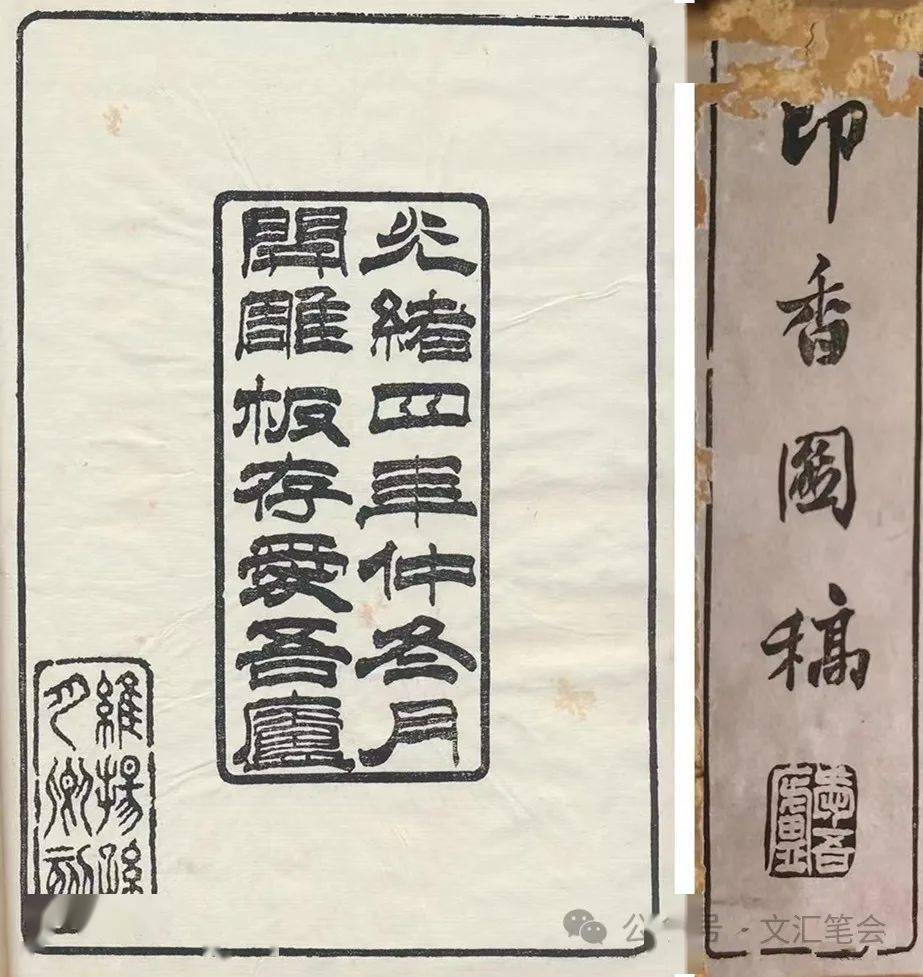 光緒四年仲冬月
開雕板存愛吾廬
維揚孫
月卿刻
印香圖稿
愛吾
廬
公众号 · 文汇笔会